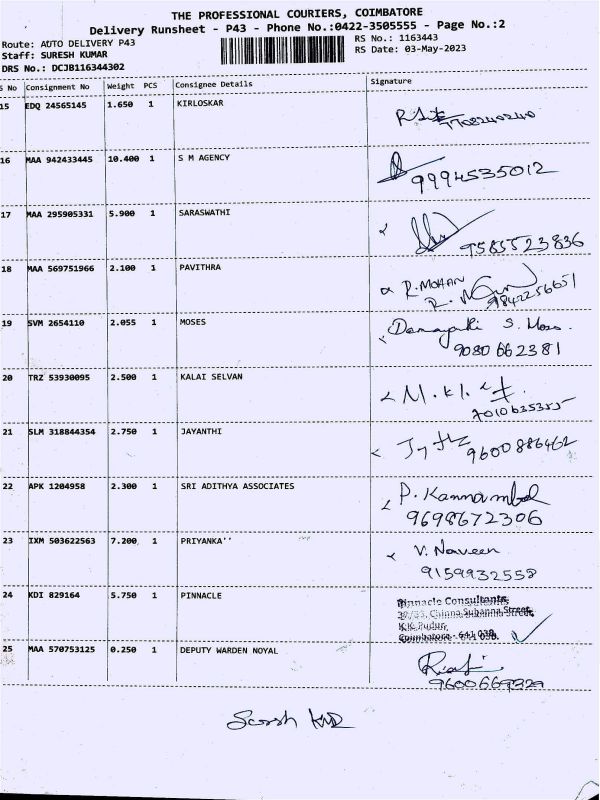 THE PROFESSIONAL COURIERS, COIMBATORE
Delivery Runsheet - P43 - Phone No.:0422-3505555 - Page No.:2
Route: AUTO DELIVERY P43 RS No.: 1163443
Staff: SURESH KUMAR RS Date: 03-May-2023
DRS No.: DCJB116344302
S No Consignment No Weight PCS Consignee Details Signature
15 EDQ 24565145 1.650 1 KIRLOSKAR
16 MAA 942433445 10.400 1 S M AGENCY
9994535012
17 MAA 295905331 5.900 1 SARASWATHI
9585523836
18 MAA 569751966 2.100 1 PAVITHRA
R.MOHAN
9842256651
19 SVM 2654110 2.055 1 MOSES
9080662381
20 TRZ 53930095 2.500 1 KALAI SELVAN
7010635355
21 SLM 318844354 2.750 1 JAYANTHI
9600886462
22 APK 1204958 2.300 1 SRI ADITHYA ASSOCIATES
P. Kannambal
9698672306
23 IXM 503622563 7.200 1 PRIYANKA''
V. Naveen
9159932558
24 KDI 829164 5.750 1 PINNACLE
Pinnacle Consultants
Chinna Subanna Street,
K.K. Pudur,
Coimbatore - 641 038.
25 MAA 570753125 0.250 1 DEPUTY WARDEN NOYAL